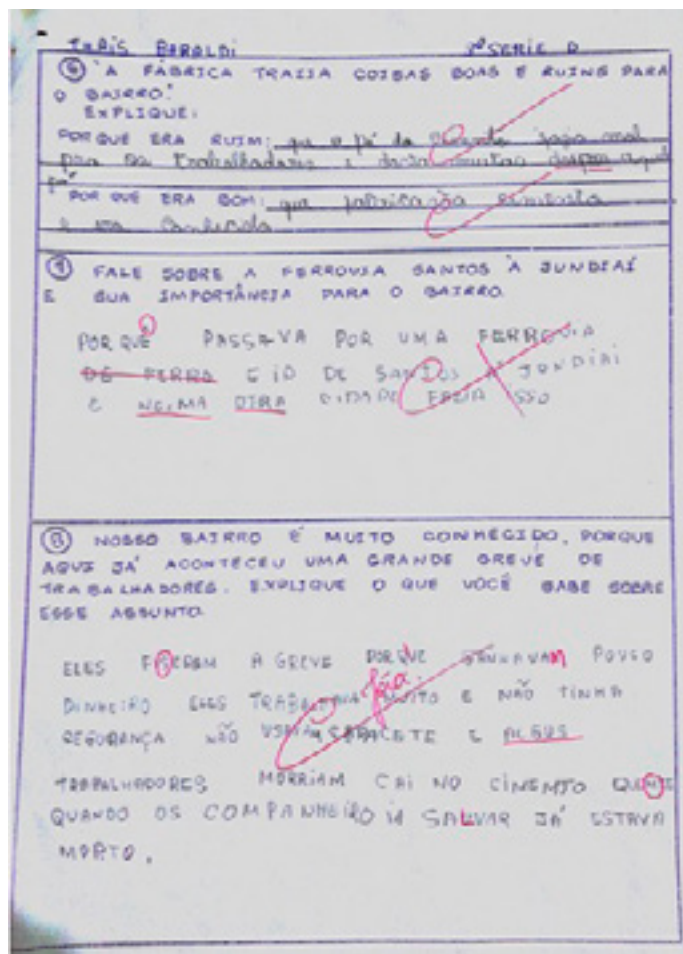 THAÍS BARALDI 2ª SERIE D
⑥ "A FÁBRICA TRAZIA COISAS BOAS E RUINS PARA
O BAIRRO."
EXPLIQUE:
POR QUE ERA RUIM: que o pó do cimento fazia mal
pra os trabalhadores e dava muitas aquele
pó
POR QUE ERA BOM: que fabricação cimento
e era conhecida
⑦ FALE SOBRE A FERROVIA SANTOS À JUNDIAÍ
E SUA IMPORTÂNCIA PARA O BAIRRO.
POR QUE PASSAVA POR UMA FERROVIA
DE FERRO E IA DE SANTOS A JUNDIAI
E NEIMA OTRA CIDADE FAZIA ISSO
⑧ NOSSO BAIRRO É MUITO CONHECIDO, PORQUE
AQUI JÁ ACONTECEU UMA GRANDE GREVE DE
TRABALHADORES. EXPLIQUE O QUE VOCÊ SABE SOBRE
ESSE ASSUNTO.
ELES FISERAM A GREVE PORQUE GANHAVAM POUCO
DINHEIRO ELES MUITO E NÃO TINHA
SEGURANÇA NÃO USAVAM CAPACETE E ALGUS
TRABALHADORES MORRIAM CAI NO CIMENTO QUENTE
QUANDO OS COMPANHEIRO IA SALVAR JÁ ESTAVA
MORTO.